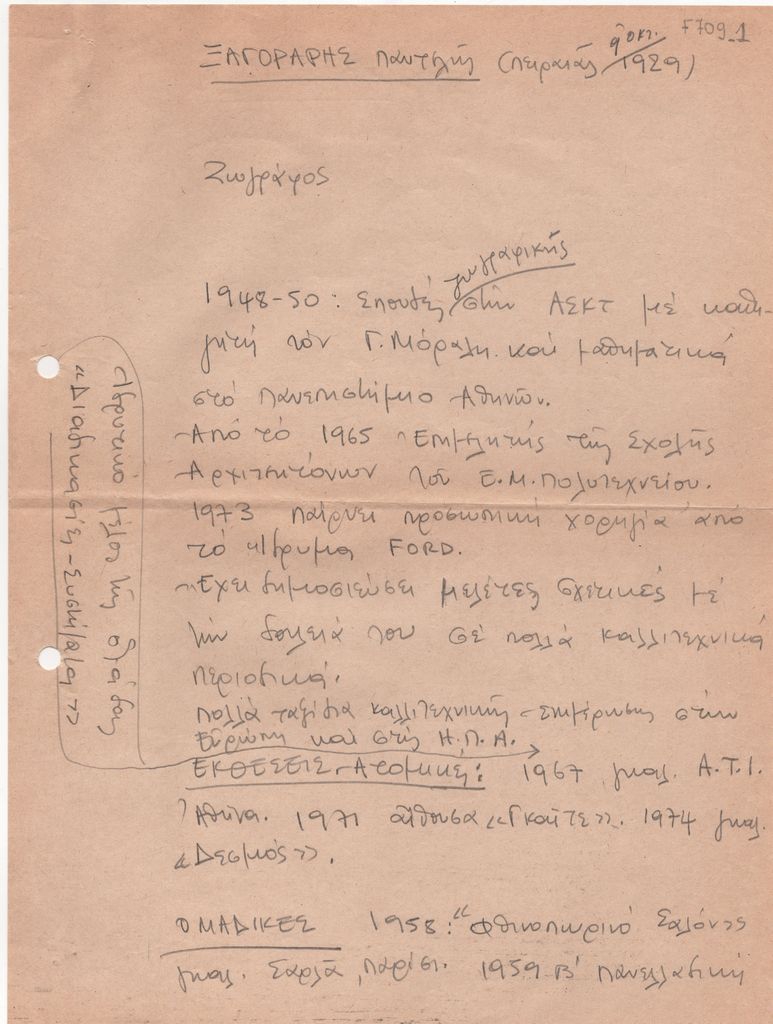 F709_1
9 οκτ.
ΞΑΓΟΡΑΡΗΣ Παντελής (Πειραιάς 1929)
Ζωγράφος
ζωγραφικής
1948-50: Σπουδές στήν ΑΣΚΤ μέ καθη-
γητή τόν Γ. Μόραλη καί μαθηματικά
στό Πανεπιστήμιο Αθηνών.
Από τό 1965 Επιμελητής της Σχολής
Αρχιτεκτόνων του Ε.Μ.Πολυτεχνείου.
1973 παίρνει προσωπική χορηγία από
τό Ίδρυμα FORD.
Έχει δημοσιεύσει μελέτες σχετικές μέ
τήν δουλειά του σέ πολλά καλλιτεχνικά
περιοδικά.
Πολλά ταξίδια καλλιτεχνικής ενημέρωσης στήν
Ευρώπη καί στίς Η.Π.Α.
ΕΚΘΕΣΕΙΣ Ατομικές: 1967 γκαλ. Α.Τ.Ι.
Αθήνα. 1971 αίθουσα «Γκαίτε». 1974 γκαλ.
«Δεσμός».
ΟΜΑΔΙΚΕΣ 1958: "Φθινοπωρινό Σαλόν»
γκαλ. Σαρλά, Παρίσι. 1959 Β' Πανελλαδική
Ιδρυτικό μέλος της ομάδας
«Διαδικασίες-Συστήματα»